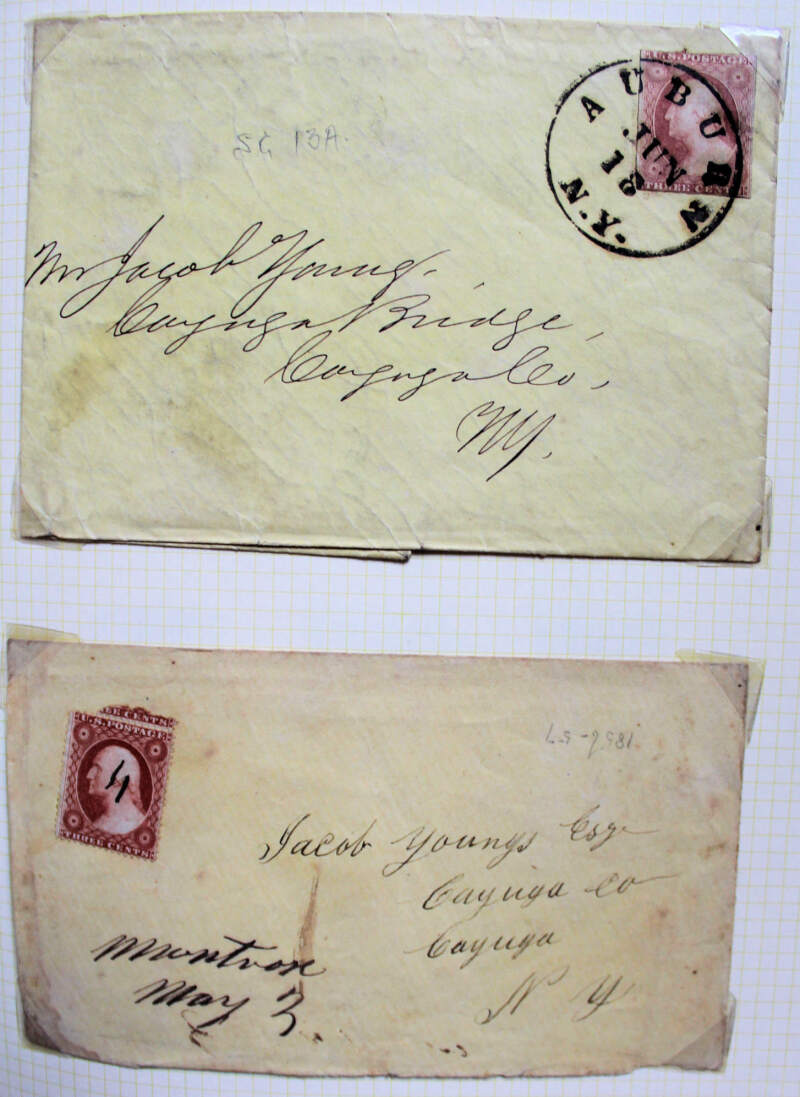 U.S. POSTAGE
THREE CENTS
AUBURN
N.Y.
JUN
18
SG 13A.
Mr Jacob Young.
Cayuga Bridge,
Cayuga Co,
NY.
EE CENTS
U.S. POSTAGE
THREE CENTS
Jacob Youngs Esqr
Cayuga Co
Cayuga
N Y
Montrose
May 3